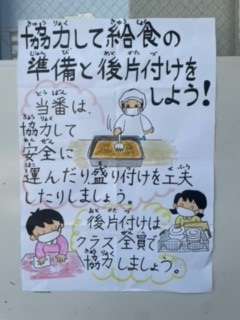 協力して給食の
準備と後片付けを
しよう!
当番は、
協力して
安全に
運んだり盛り付けを工夫
したりしましょう。
後片付けは
クラス全員で
協力しましょう。